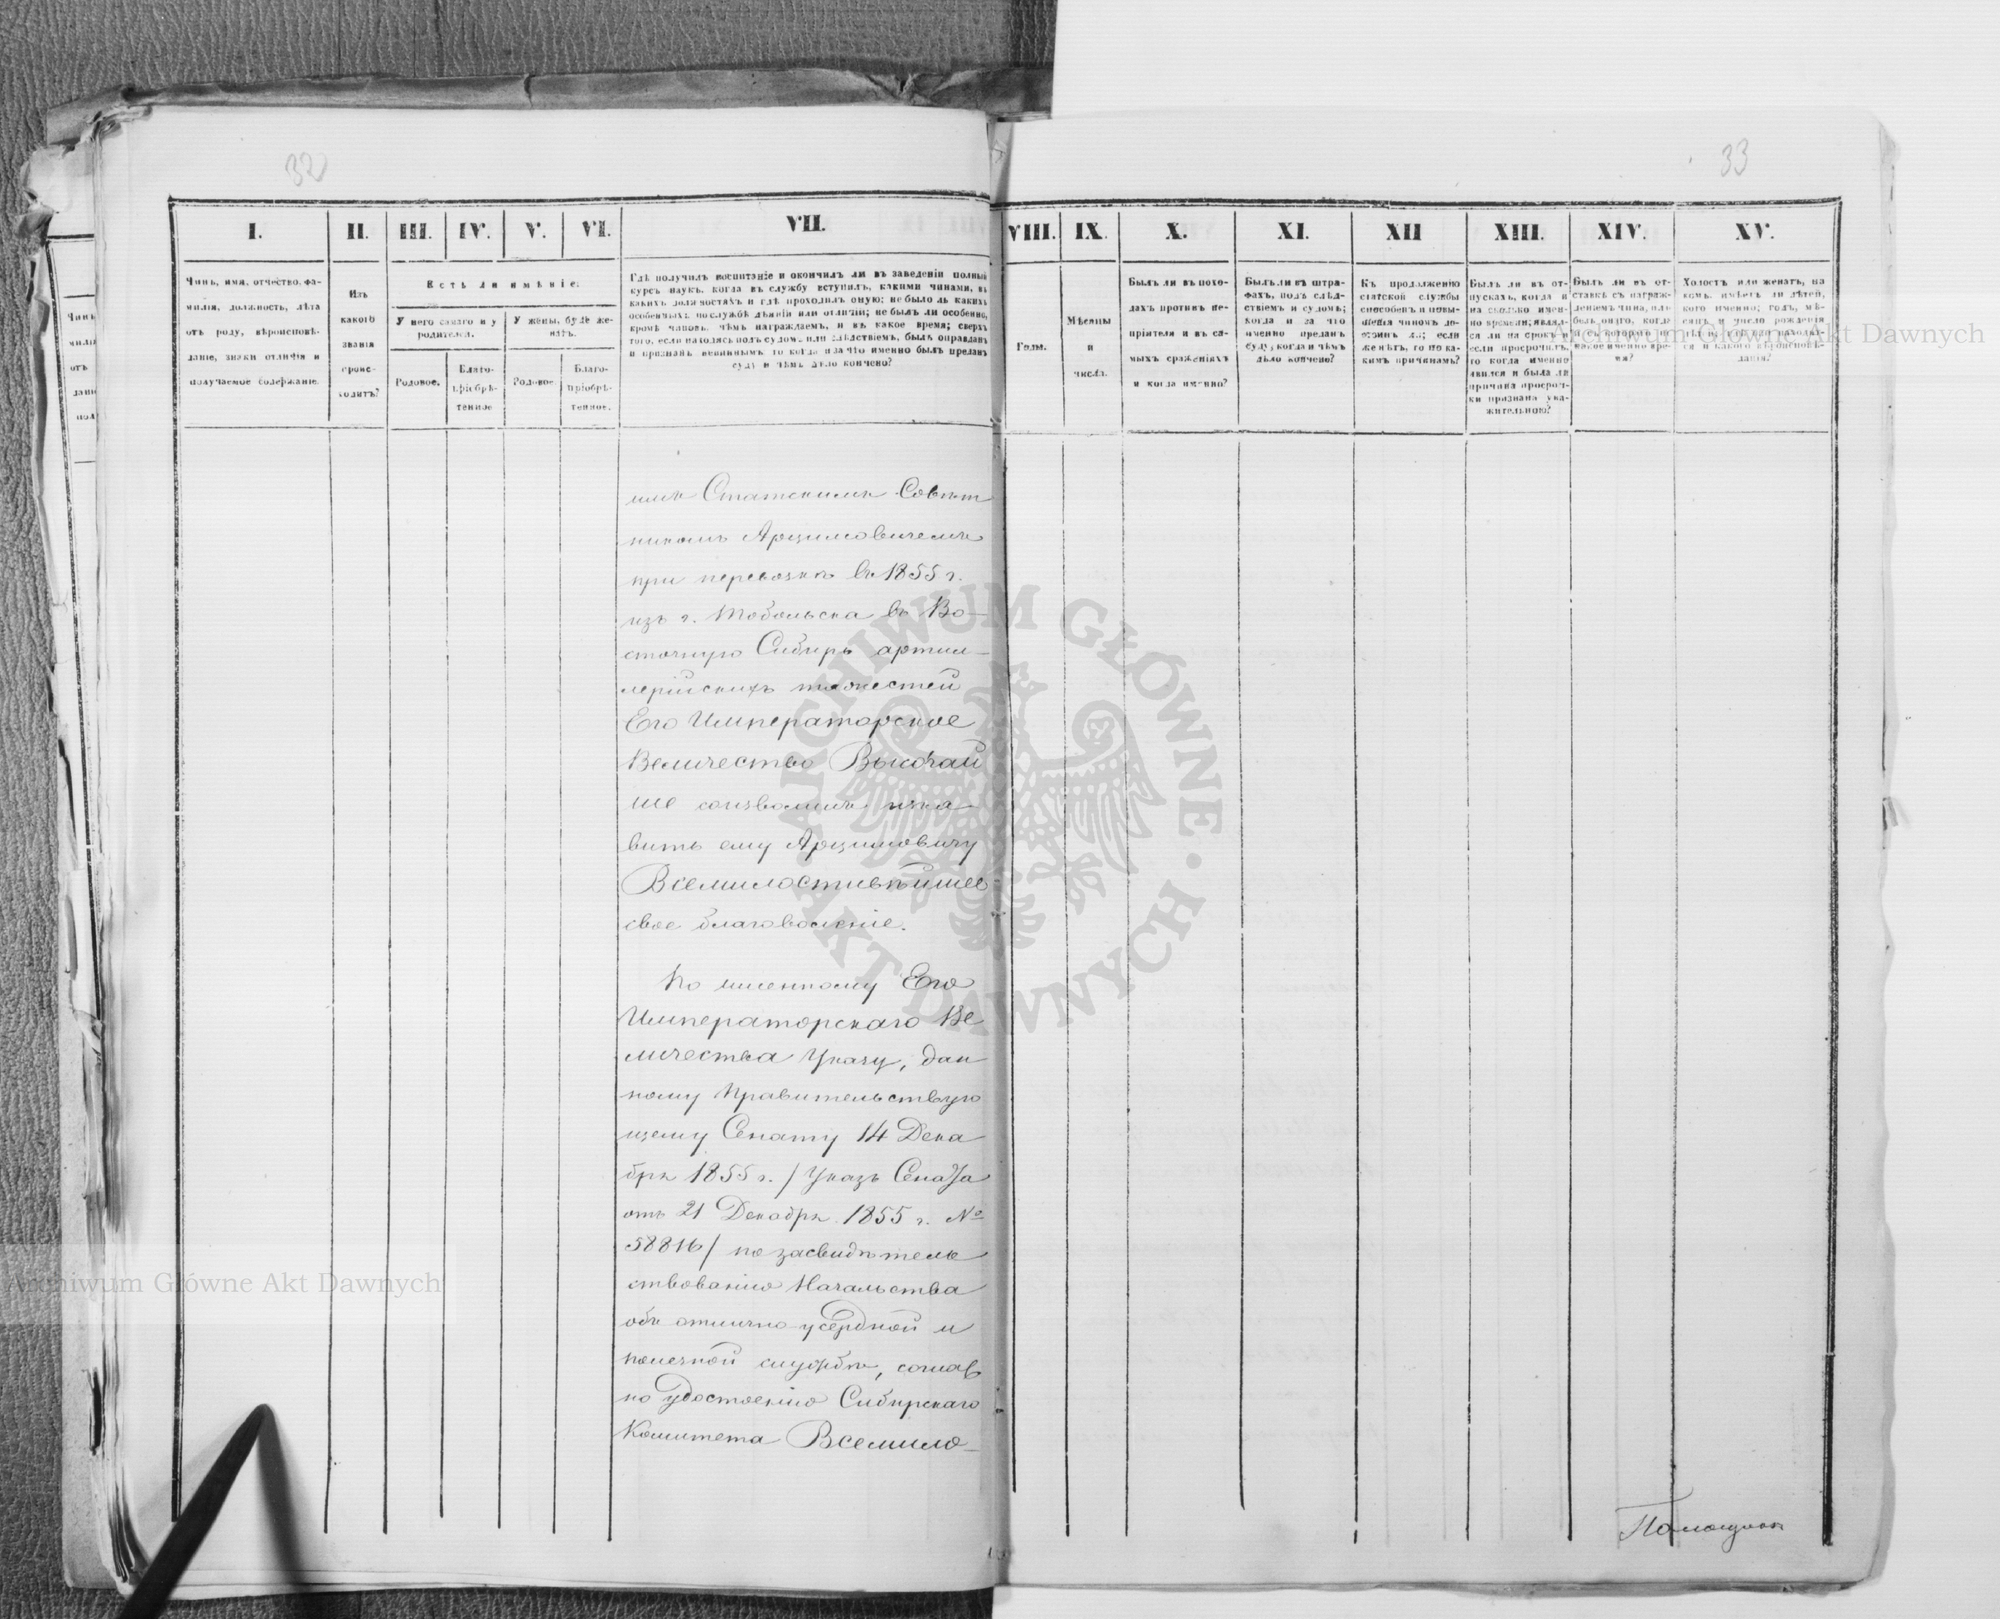 32
33
I. II. III. IV. V. VI. VII. VIII. IX. X. XI. XII XIII. XIV. XV.
Чинъ, имя, отчество, фа-
милія, должность, лѣта
отъ роду, вѣроисповѣ-
даніе, знаки отличія и
получаемое содержаніе.
Изъ
какого
званія
проис-
ходитъ?
Есть ли имѣніе:
У него самаго и у
родителей.
У жены, буде же-
натъ.
Родовое.
Благо-
пріобрѣ-
тенное
Родовое.
Благо-
пріобрѣ-
тенное.
Гдѣ получилъ воспитаніе и окончилъ ли въ заведеніи полный
курсъ наукъ, когда въ службу вступилъ, какими чинами, въ
какихъ должностяхъ и гдѣ проходилъ оную; не было ль какихъ
особенныхъ по службѣ дѣяній или отличій; не былъ ли особенно,
кромѣ чиновъ, чѣмъ награждаемъ, и въ какое время; сверхъ
того, если находясь подъ судомъ или слѣдствіемъ, былъ оправданъ
и признанъ невиннымъ, то когда и за что именно былъ преданъ
суду и чѣмъ дѣло кончено?
Годы.
Мѣсяцы
и
числа.
Былъ ли въ похо-
дахъ противъ не-
пріятеля и въ са-
мыхъ сраженіяхъ
и когда именно?
Былъ ли въ штра-
фахъ, подъ слѣд-
ствіемъ и судомъ;
когда и за что
именно преданъ
суду; когда и чѣмъ
дѣло кончено?
Къ продолженію
статской службы
способенъ и повы-
шенія чиномъ до-
стоинъ ли; если
же нѣтъ, то по ка-
кимъ причинамъ?
Былъ ли въ от-
пускахъ, когда и
на сколько имен-
но времени; являл-
ся ли на срокъ и
если просрочилъ,
то когда именно
явился и была ли
причина просроч-
ки признана ува-
жительною?
Былъ ли въ от-
ставкѣ съ награж-
деніемъ чина, или
безъ онаго, когда
и съ котораго по
какое именно вре-
мя?
Холостъ или женатъ, на
комъ, имѣетъ ли дѣтей,
кого именно; годъ, мѣ-
сяцъ и число рожденія
дѣтей, гдѣ они находят-
ся и какого вѣроисповѣ-
данія?
мъ Статскимъ Совѣт
никомъ Арцимовичемъ
при перевозкѣ въ 1855 г.
изъ г. Тобольска въ Во-
сточную Сибирь артил-
лерійскихъ тяжестей
Его Императорское
Величество Высочай
ше соизволилъ изъя
вить ему Арцимовичу
Всемилостивѣйшее
свое благоволеніе.
По именному Его
Императорскаго Ве
личества Указу, дан
ному Правительствую
щему Сенату 14 Дека
бря 1855 г. / Указъ Сената
отъ 21 Декабря 1855 г. №
58816 / по засвидѣтель
ствованію Начальства
объ отлично усердной и
полезной службѣ, соглас
но удостоенію Сибирскаго
Комитета Всемило-
Помощник
Archiwum Główne Akt Dawnych
Archiwum Główne Akt Dawnych
ARCHIWUM GŁÓWNE AKT DAWNYCH